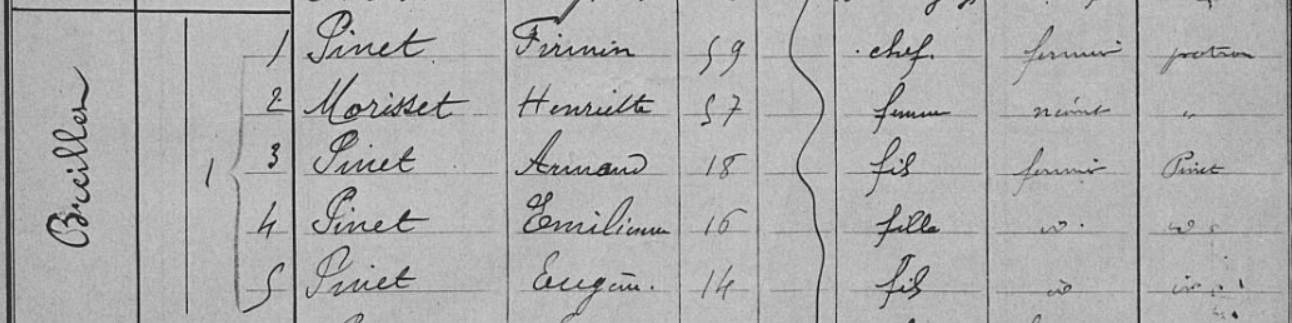 1 Pinet Firmin 59 chef. fermier patron
2 Morisset Henriette 57 femme néant "
3 Pinet Armand 18 fils fermier Pinet
4 Pinet Emilienne 16 fille id. id.
5 Pinet Eugène. 14 fils id id
1